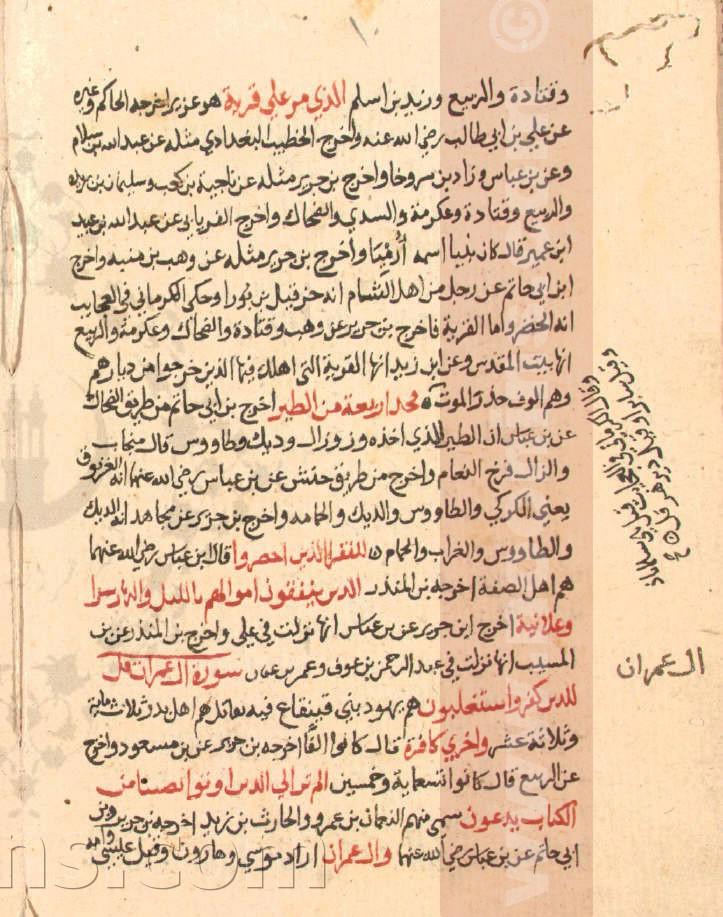 وقتادة والربيع وزيد بن اسلم الذي مر علي قرية هو عزير اخرجه الحاكم وغيره
عن علي بن ابي طالب رضي الله عنه واخرج الخطيب البغدادي مثله عن عبد الله بن سلام
وعن بن عباس وزاد بن سروخا واخرج بن جرير مثله عن ناجية بن كعب وسليمان بن بريدة
والربيع وقتادة وعكرمة والسدي والضحاك واخرج الفريابي عن عبد الله بن عبيد
ابن عمير قال كان نبيا اسمه أرميا واخرج بن جرير مثله عن وهب بن منبه واخرج
ابن ابي حاتم عن رجل من اهل الشام انه حزقيل بن بورا وحكي الكرماني في العجايب
انه الخضر واما القرية فاخرج بن جرير عن وهب وقتادة والضحاك وعكرمة والربيع
انها بيت المقدس وعن ابن زيد انها القرية التي اهلك فيها الذين خرجوا من ديارهم
وهم الوف حذر الموت فخذ اربعة من الطير اخرج بن ابي حاتم من طريق الضحاك
عن بن عباس ان الطير الذي اخذه وز ورال وديك وطاووس قال منجاب
والرال فرخ النعام واخرج من طريق حنش عن بن عباس رضي الله عنهما انه الغرنوق
يعني الكركي والطاووس والديك والحمامه واخرج بن جرير عن مجاهد انه الديك
والطاووس والغراب والحمام للفقرا الذين احصروا قال ابن عباس رضي الله عنهما
هم اهل الصفة اخرجه بن المنذر الذين ينفقون اموالهم بالليل والنهار سرا
وعلانية اخرج ابن جرير عن بن عباس انها نزلت في علي واخرج بن المنذر عن بن
المسيب انها نزلت في عبد الرحمن بن عوف وعمر بن سورة ال عمران قل
للذين كفروا ستغلبون هم يهود بني قينقاع فيه تقاتل هم اهل بدر ثلاث ماية
وثلاثة عشر واخري كافرة قال كانوا الفا اخرجه بن جرير عن بن مسعود واخرج
عن الربيع قال كانوا تسعماية وخمسين الم تر الي الذين اوتوا نصيبا من
الكتاب يدعون سمي منهم النعمان بن عمرو والحارث بن زيد اخرجه بن جرير وبن
ابي حاتم عن بن عباس رضي الله عنهما وال عمران اراد موسي وهارون وقيل عيسي وامه
ال عمران